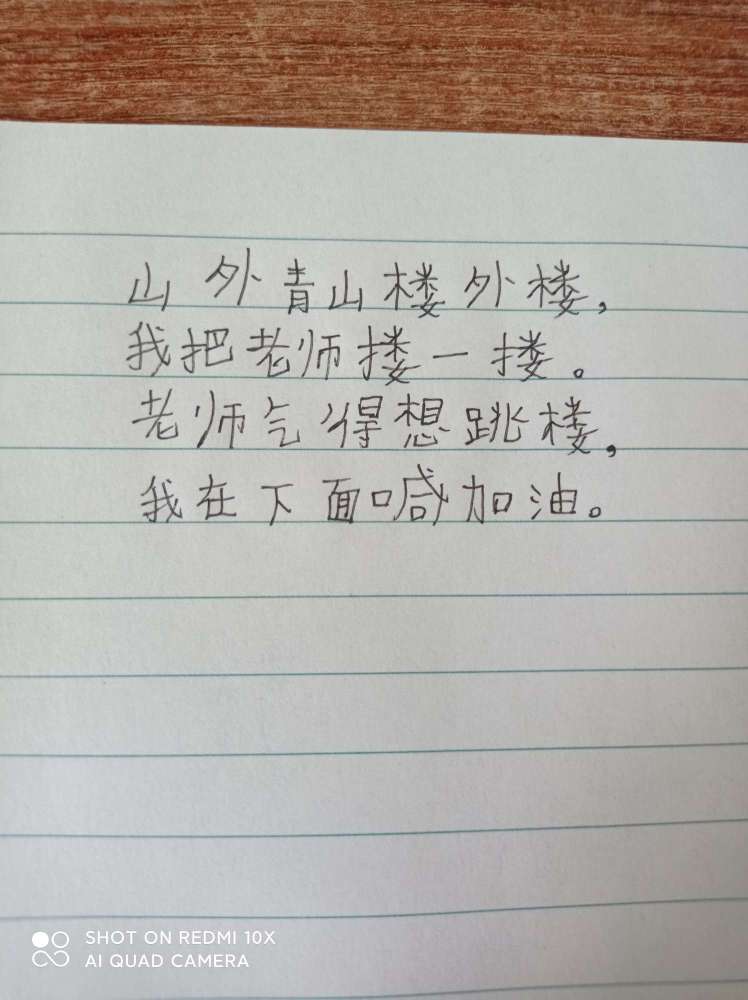 山外青山楼外楼，
我把老师搂一搂。
老师气得想跳楼，
我在下面喊加油。
SHOT ON REDMI 10X
AI QUAD CAMERA